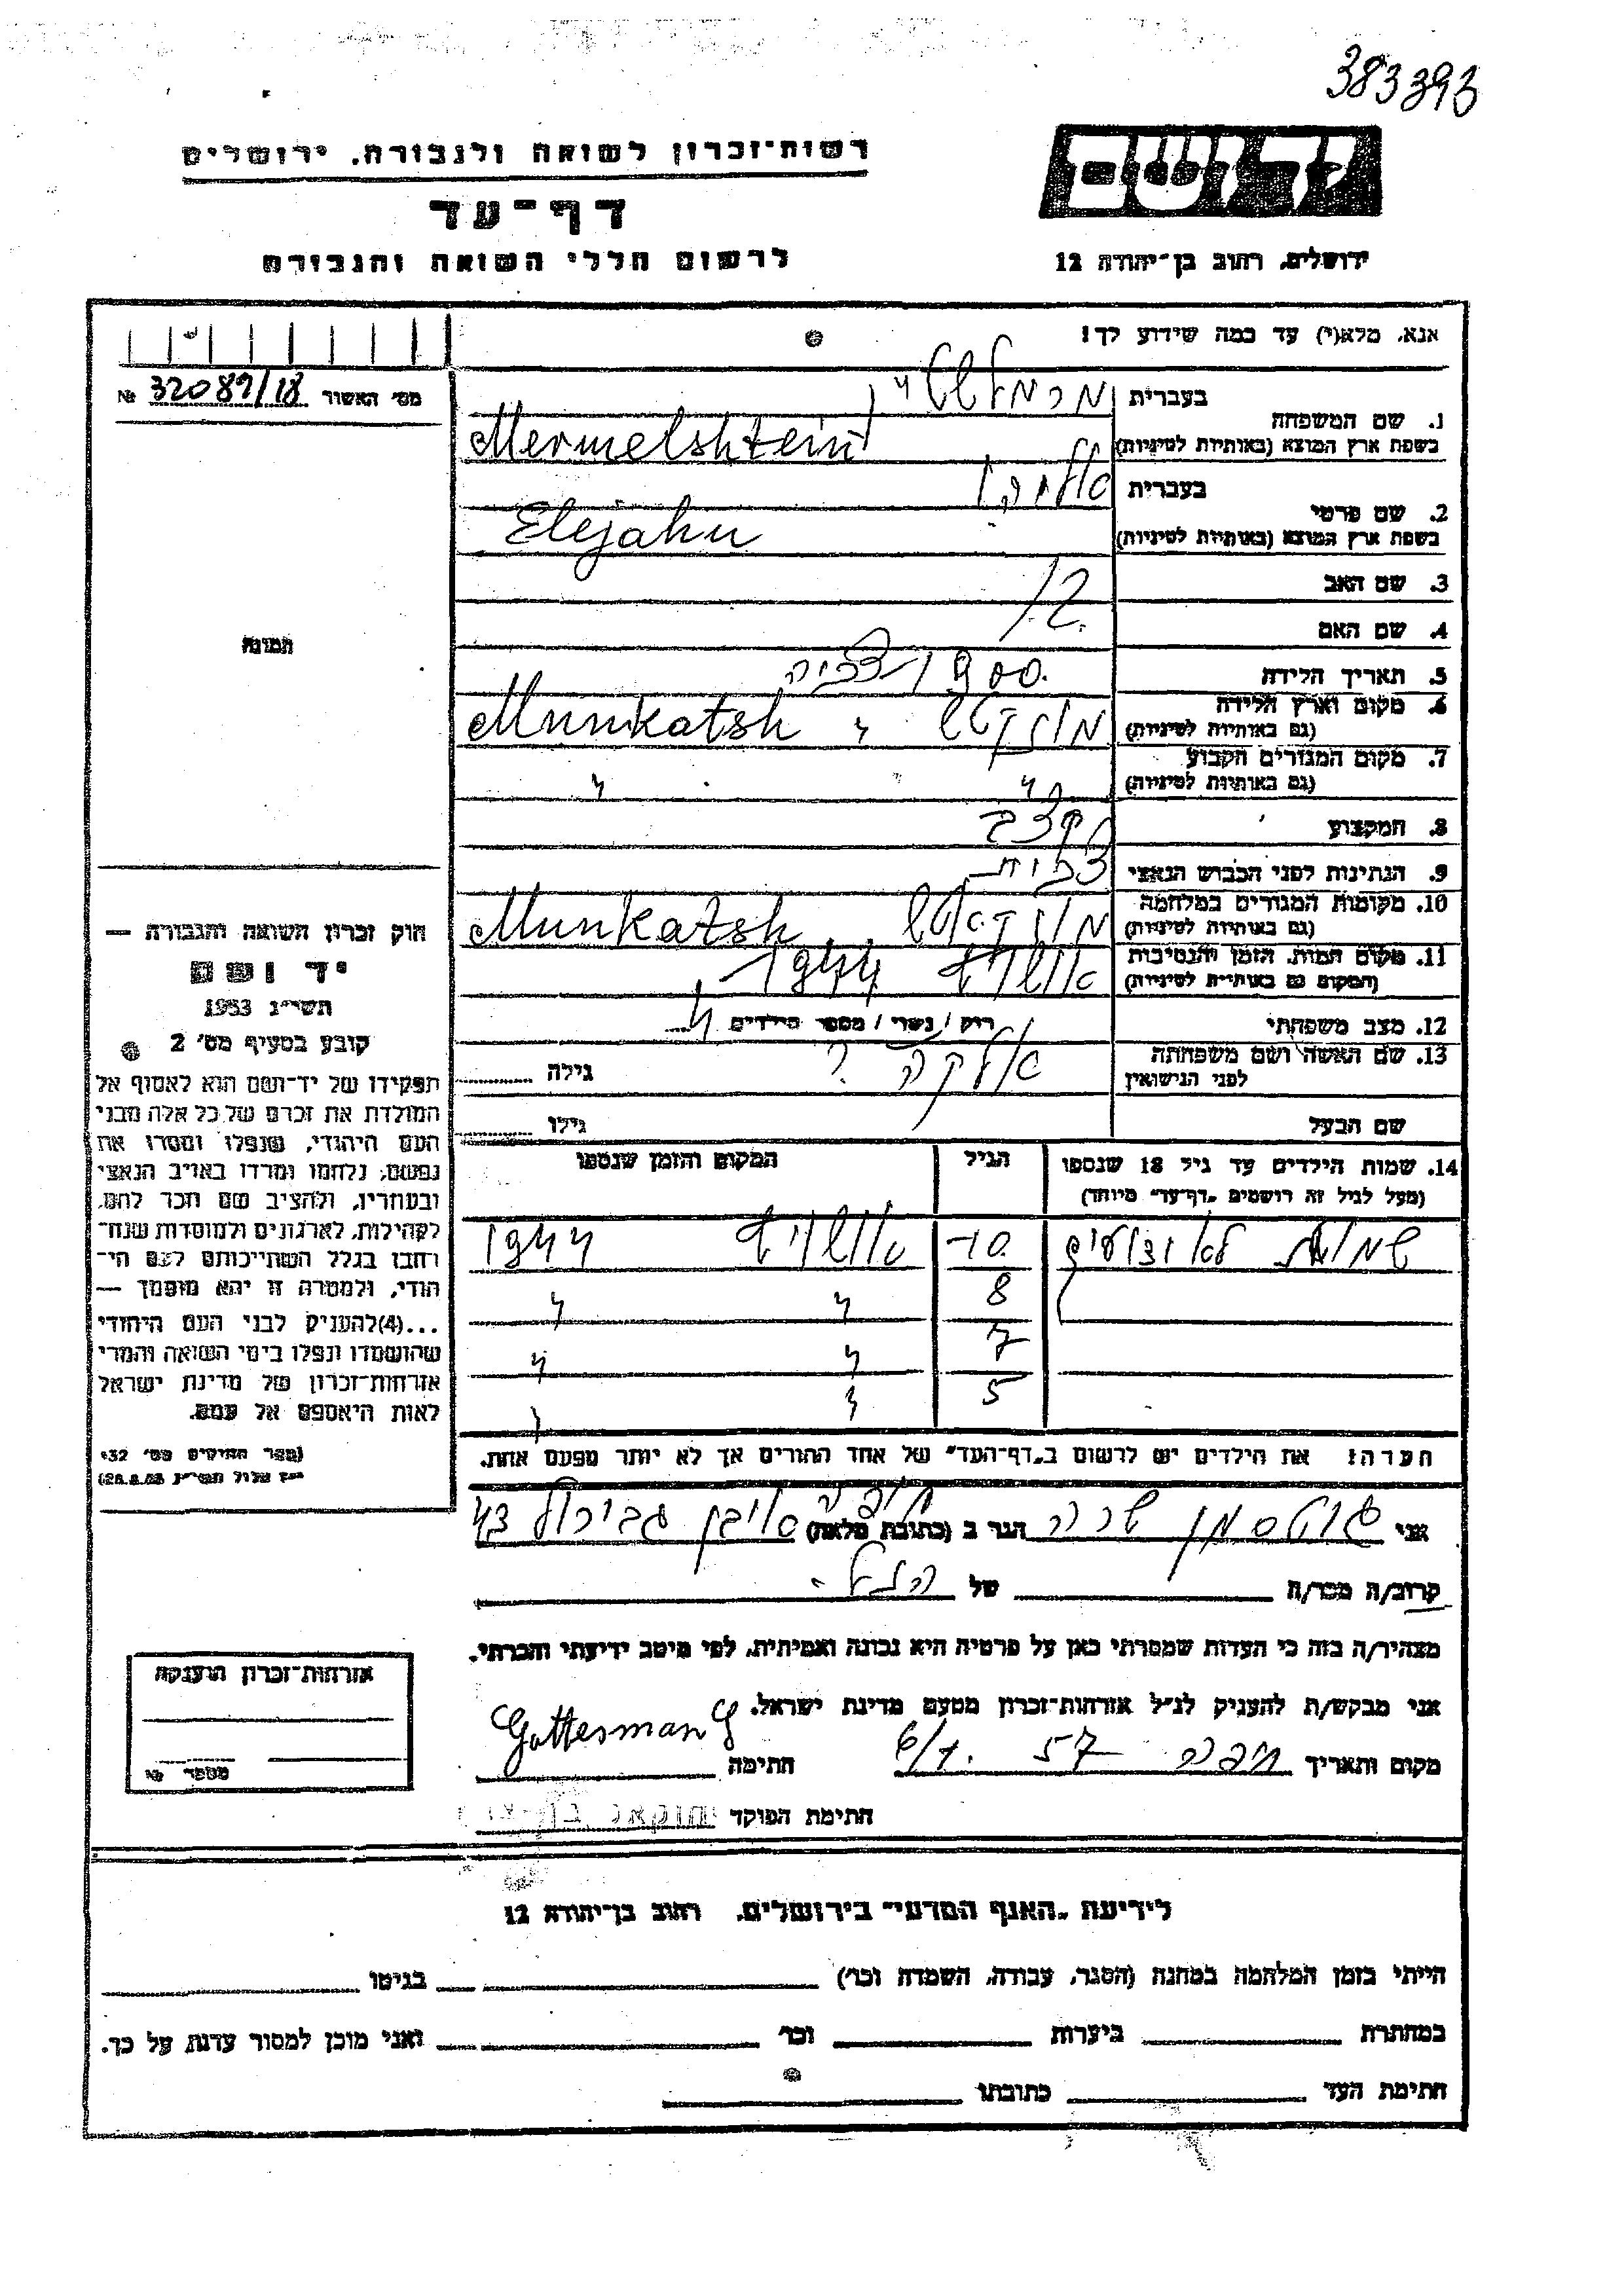 383393
רשות־זכרון לשואה ולגבורה. ירושלים
יד ושם
דף־עד
לרשום חללי השואה והגבורה
ירושלים, רחוב בן־יהודה 12
אנא, מלא(י) עד כמה שידוע לך!
מס׳ האשור 32089/18 №
1. שם המשפחה
בעברית מרמלשטיין
בשפת ארץ המוצא (באותיות לטיניות) Mermelshtein
2. שם פרטי
בעברית אליהו
בשפת ארץ המוצא (באותיות לטיניות) Elejahu
3. שם האב
4. שם האם
תמונה
5. תאריך הלידה 1900
6. מקום וארץ הלידה
(גם באותיות לטיניות) מונקטש Munkatsh
7. מקום המגורים הקבוע
(גם באותיות לטיניות) " "
8. המקצוע קצב
9. הנתינות לפני הכבוש הנאצי
10. מקומות המגורים במלחמה
(גם באותיות לטיניות) Munkatsh
11. מקום המות, הזמן והנסיבות
(המקום גם באותיות לטיניות) אושויץ 1944
12. מצב משפחתי רוק / נשוי / מספר הילדים 4
13. שם האשה ושם משפחתה
לפני הנישואין ? גילה
שם הבעל גילו
14. שמות הילדים עד גיל 18 שנספו הגיל המקום והזמן שנספו
(מעל לגיל זה רושמים "דף־עד" מיוחד)
שמות לא ידועים 10 אושויץ 1944
8 " "
7 " "
5 " "
הערה: את הילדים יש לרשום ב"דף־העד" של אחד ההורים אך לא יותר מפעם אחת.
חוק זכרון השואה והגבורה —
יד ושם
תשי״ג 1953
קובע בסעיף מס׳ 2
תפקידו של יד־ושם הוא לאסוף אל
המולדת את זכרם של כל אלה מבני
העם היהודי, שנפלו ומסרו את
נפשם, נלחמו ומרדו באויב הנאצי
ובעוזריו, ולהציב שם וזכר להם,
לקהילות, לארגונים ולמוסדות שנח־
רבו בגלל השתייכותם לעם הי־
הודי, ולמטרה זו יהא מוסמך —
...(4) להעניק לבני העם היהודי
שהושמדו ונפלו בימי השואה והמרי
אזרחות־זכרון של מדינת ישראל
לאות היאספם אל עמם.
(ספר החוקים מס׳ 132
אני גוטסמן שרה הגר ב (כתובת מלאה) חיפה אבן גבירול 43
קרוב/ה מכר/ה של
מצהיר/ה בזה כי העדות שמסרתי כאן על פרטיה היא נכונה ואמיתית, לפי מיטב ידיעתי והכרתי.
אני מבקש/ת להעניק לנ״ל אזרחות־זכרון מטעם מדינת ישראל.
מקום ותאריך חיפה 57 חתימה Gottesman S
חתימת הפוקד
אזרחות־זכרון הוענקה
מספר №
לידיעת "האגף המדעי" בירושלים, רחוב בן־יהודה 12
הייתי בזמן המלחמה במחנה (הסגר, עבודה, השמדה וכו׳) בגיטו
במחתרת ביערות וכו׳ ואני מוכן למסור עדות על כך.
חתימת העד כתובתו